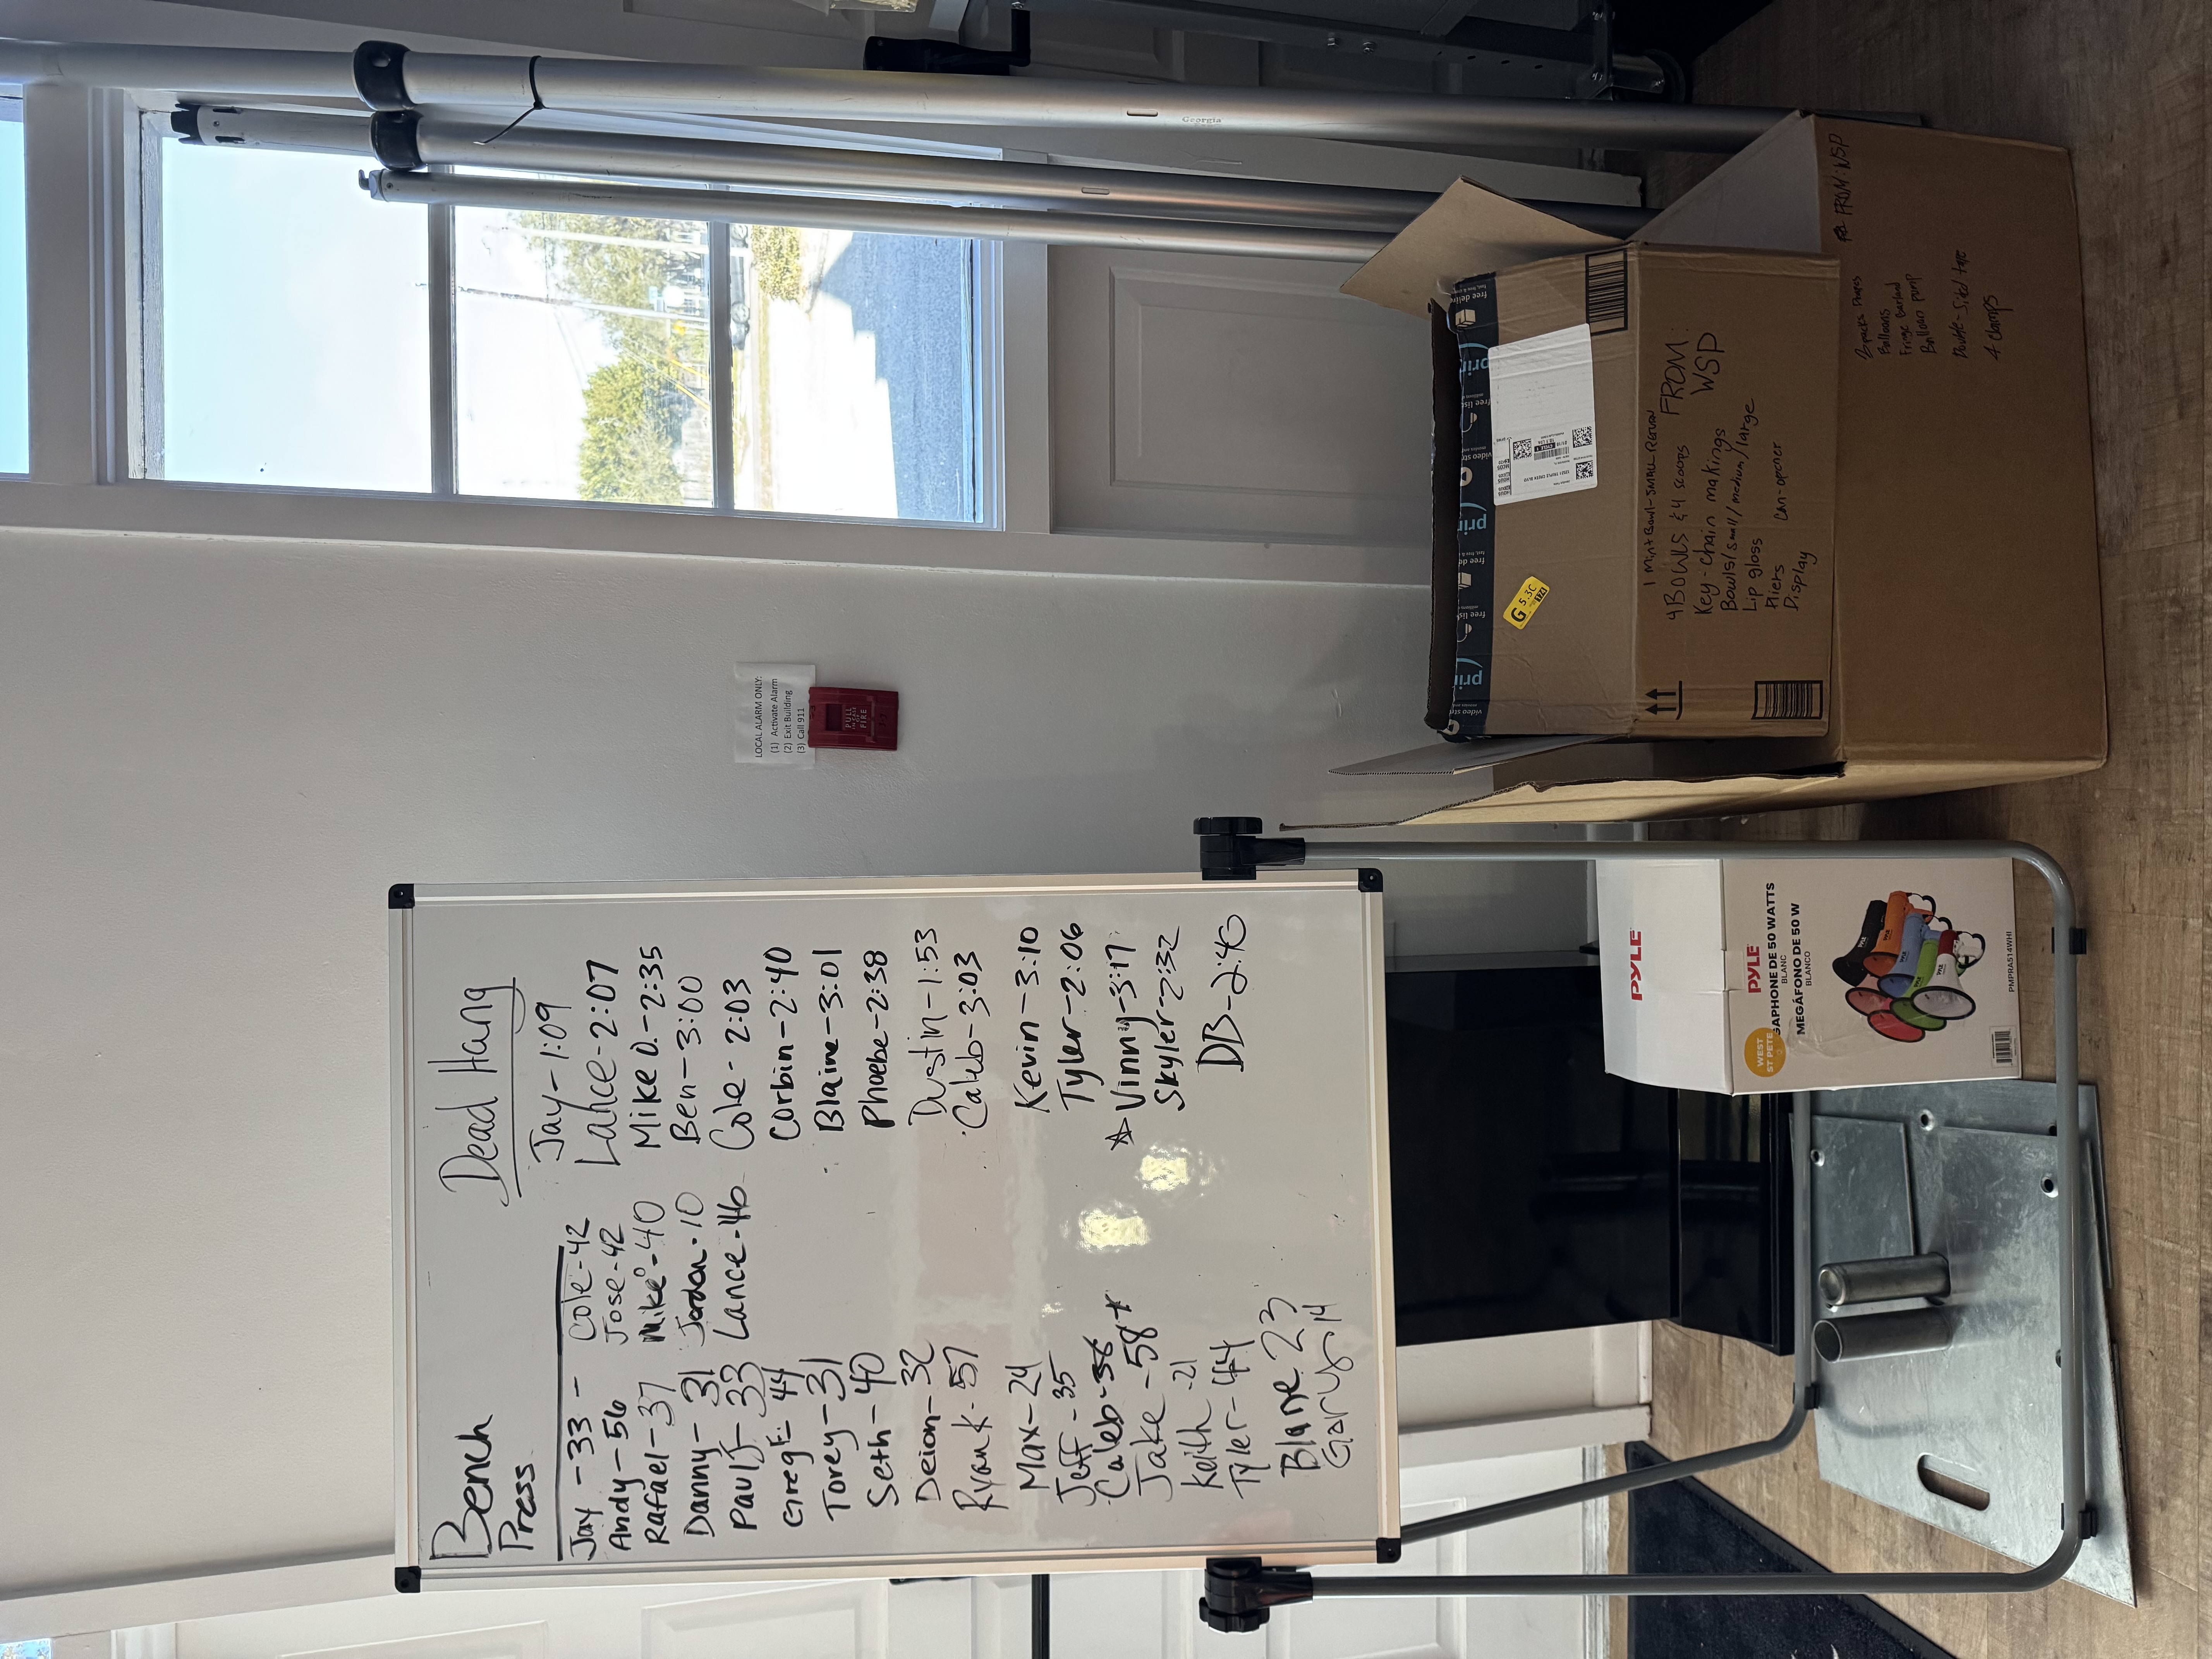 Bench
Press
Jay - 33 -
Andy - 56
Rafael - 37
Danny - 31
Paul J - 33
Greg F - 44
Torey - 31
Seth - 40
Deion - 32
Ryan K - 57
Max - 24
Jeff - 35
Caleb - 38
Jake - 58 *
Keith - 21
Tyler - 44
Blane 23
Gary 14
Cole - 42
Jose - 42
Mike O - 40
Jordan - 10
Lance - 46
Dead Hang
Jay - 1:09
Lance - 2:07
Mike O. - 2:35
Ben - 3:00
Cole - 2:03
Corbin - 2:40
Blaine - 3:01
Phoebe - 2:38
Dustin - 1:53
Caleb - 3:03
Kevin - 3:10
Tyler - 2:06
☆ Vinny - 3:17
Skyler - 2:32
DB - 2:40
LOCAL ALARM ONLY:
(1) Activate Alarm
(2) Exit Building
(3) Call 911
PULL
FIRE
Georgia
PYLE
PYLE
GAPHONE DE 50 WATTS
BLANC
MEGÁFONO DE 50 W
BLANCO
WEST
ST PETE
PMPRA514WHI
G 5.3C
1 Mint Bowl - SMALL
4 BOWLS & 4 SCOOPS
FROM:
WSP
Key-chain makings
Bowls/small/medium/large
Lip gloss
Pliers
Can-opener
Display
FROM: WSP
2 packs
Balloons
Fringe Garland
Balloon pump
Double-sided tape
4 clamps